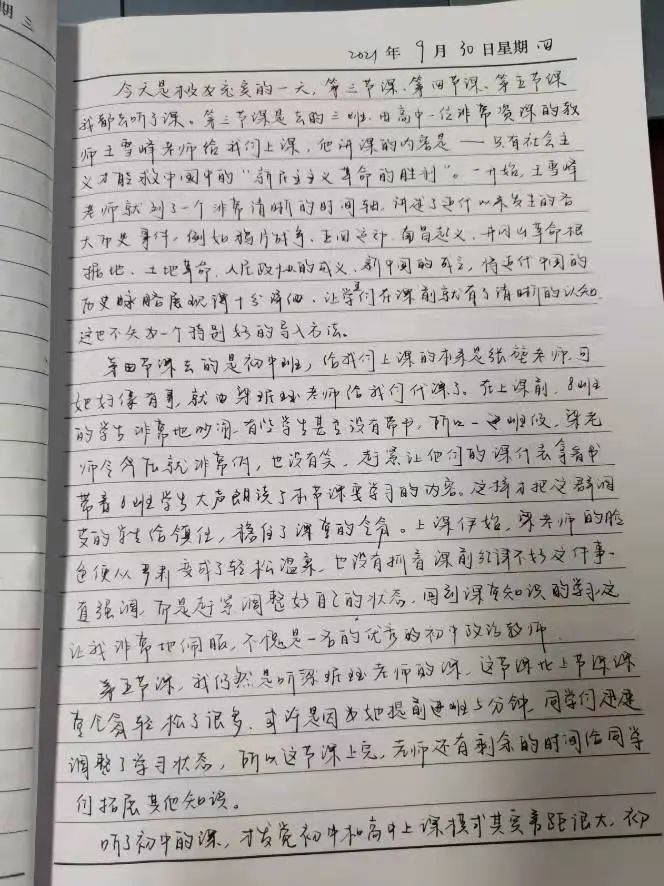 期 三
2021 年 9 月 30 日星期 四
今天是极为充实的一天，第三节课、第四节课、第五节课
我都去听了课。第三节课是去的三班，由高中一位非常资深的教
师王雪峰老师给我们上课，他讲课的内容是——只有社会主
义才能救中国中的“新民主主义革命的胜利”。一开始，王雪峰
老师就列了一个非常清晰的时间轴，讲述了近代以来发生的各
大历史事件，例如鸦片战争、五四运动、南昌起义、井冈山革命根
据地、土地革命、人民政协的成立、新中国的成立，将近代中国的
历史脉络展现得十分详细，让学生们在课前就有了清晰的认知，
这也不失为一个特别好的导入方法。
第四节课去的是初中班，给我们上课的本来是张莹老师，可
她好像有事，就由梁班老师给我们代课了。在上课前，8班
的学生非常地吵闹，有些学生甚至没有带书，所以一进班级，梁老
师令然后就非常，也没有笑，赶紧让他们的课代去拿着书
带着8班学生大声朗读了本节课要学习的内容。这样才把这群调
皮的学生给镇住，稳住了课堂的气氛。上课伊始，梁老师的脸
色便从严肃变成了轻松温柔，也没有抓着课前纪律不好这件事一
直强调，而是赶紧调整好自己的状态，回到课堂知识的学习，这
让我非常地佩服，不愧是一名的优秀的初中政治教师
第五节课，我仍然是听梁班老师的课，这节课比上节课课
堂气氛轻松了很多，或许是因为她提前进班5分钟，同学们迅速
调整了学习状态，所以这节课上完，老师还有剩余的时间给同学
们拓展其他知识。
听了初中的课，才发觉初中和高中上课模式其实差距很大，初